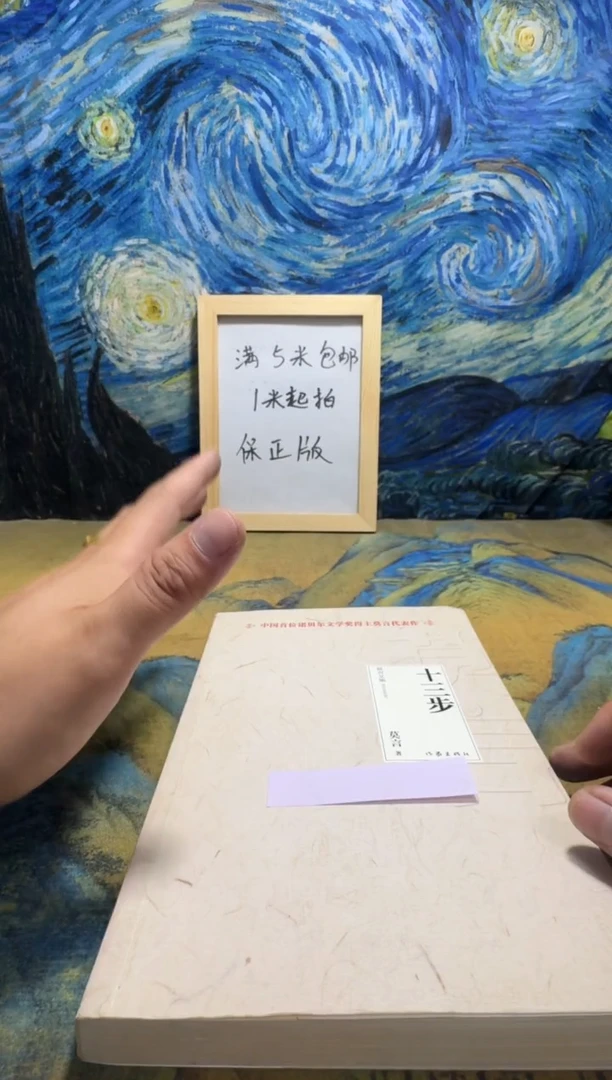 满5米包邮
1米起拍
保正版
中国首位诺贝尔文学奖得主莫言代表作
十三步
莫言 著
作家出版社